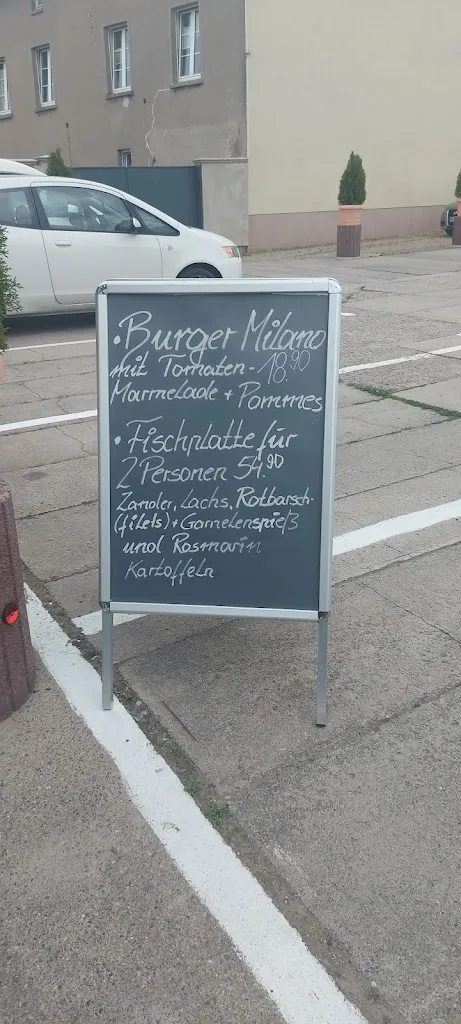 • Burger Milano
mit Tomaten- 18.90
Marmelade + Pommes
• Fischplatte für
2 Personen 54.90
Zander, Lachs, Rotbarsch-
(filets) + Garnelenspieß
und Rosmarin
Kartoffeln